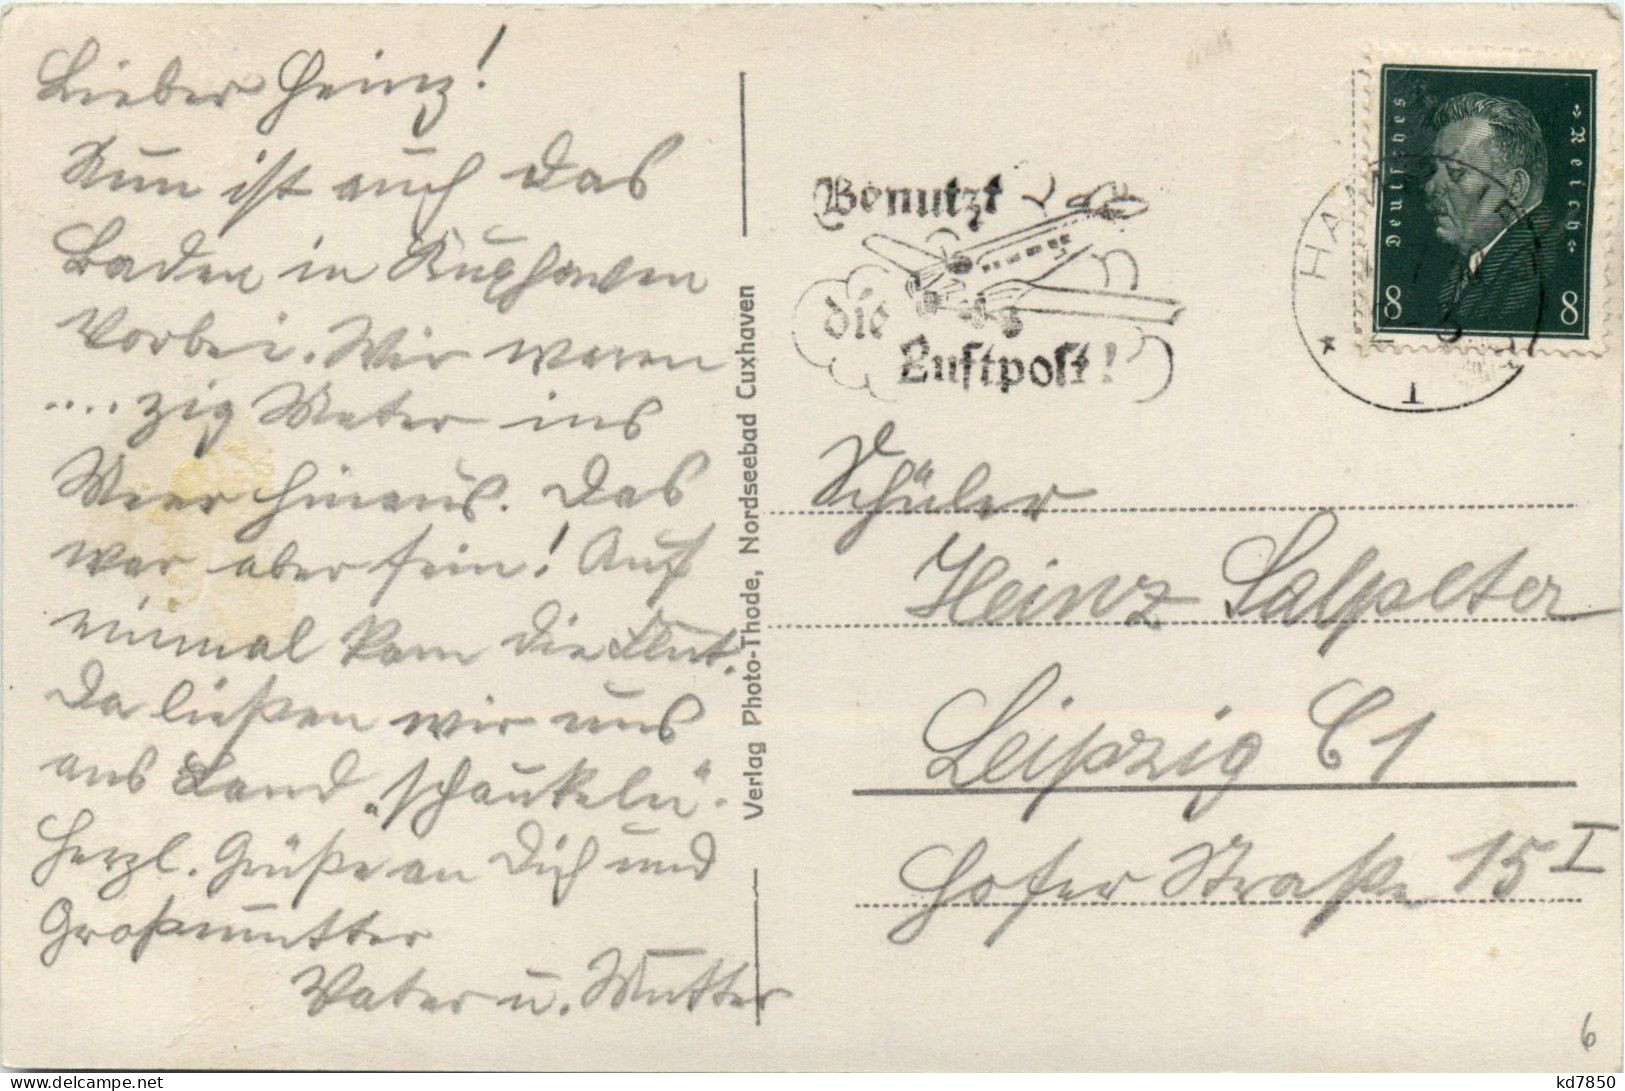 Lieber Heinz!
Nun ist auch das
Baden in Kuxhaven
vorbei. Wir waren
....zig Meter ins
Meer hinaus. Das
war aber fein! Auf
einmal kam die Flut.
Da ließen wir uns
ans Land „schaukeln".
Herzl. Grüße an Dich und
Großmutter
Vater u. Mutter
Verlag Photo-Thode, Nordseebad Cuxhaven
Benutzt
die
Luftpost!
Deutsches
«Reich»
8 8
HA
* 1
Schüler
Heinz Salpeter
Leipzig C1
Hofer Straße 15 I
6
kd7850